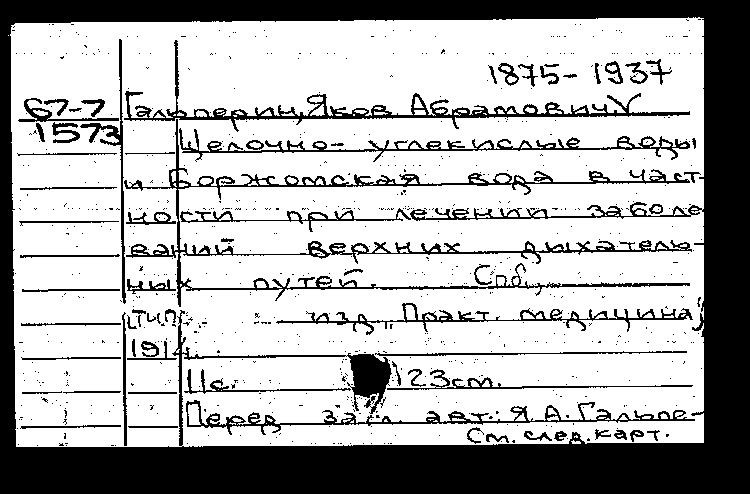 1875-1937
67-7 Гальперин, Яков Абрамович. V
1573 Щелочно- углекислые воды
и Боржомская вода в част-
ности при лечении заболе
ваний верхних дыхатель-
ных путей. Спб.,
тип. изд. „Практ. медицина",
1914.
11с. 23см.
Перед загл. авт.: Я.А. Гальпе-
См. след. карт.